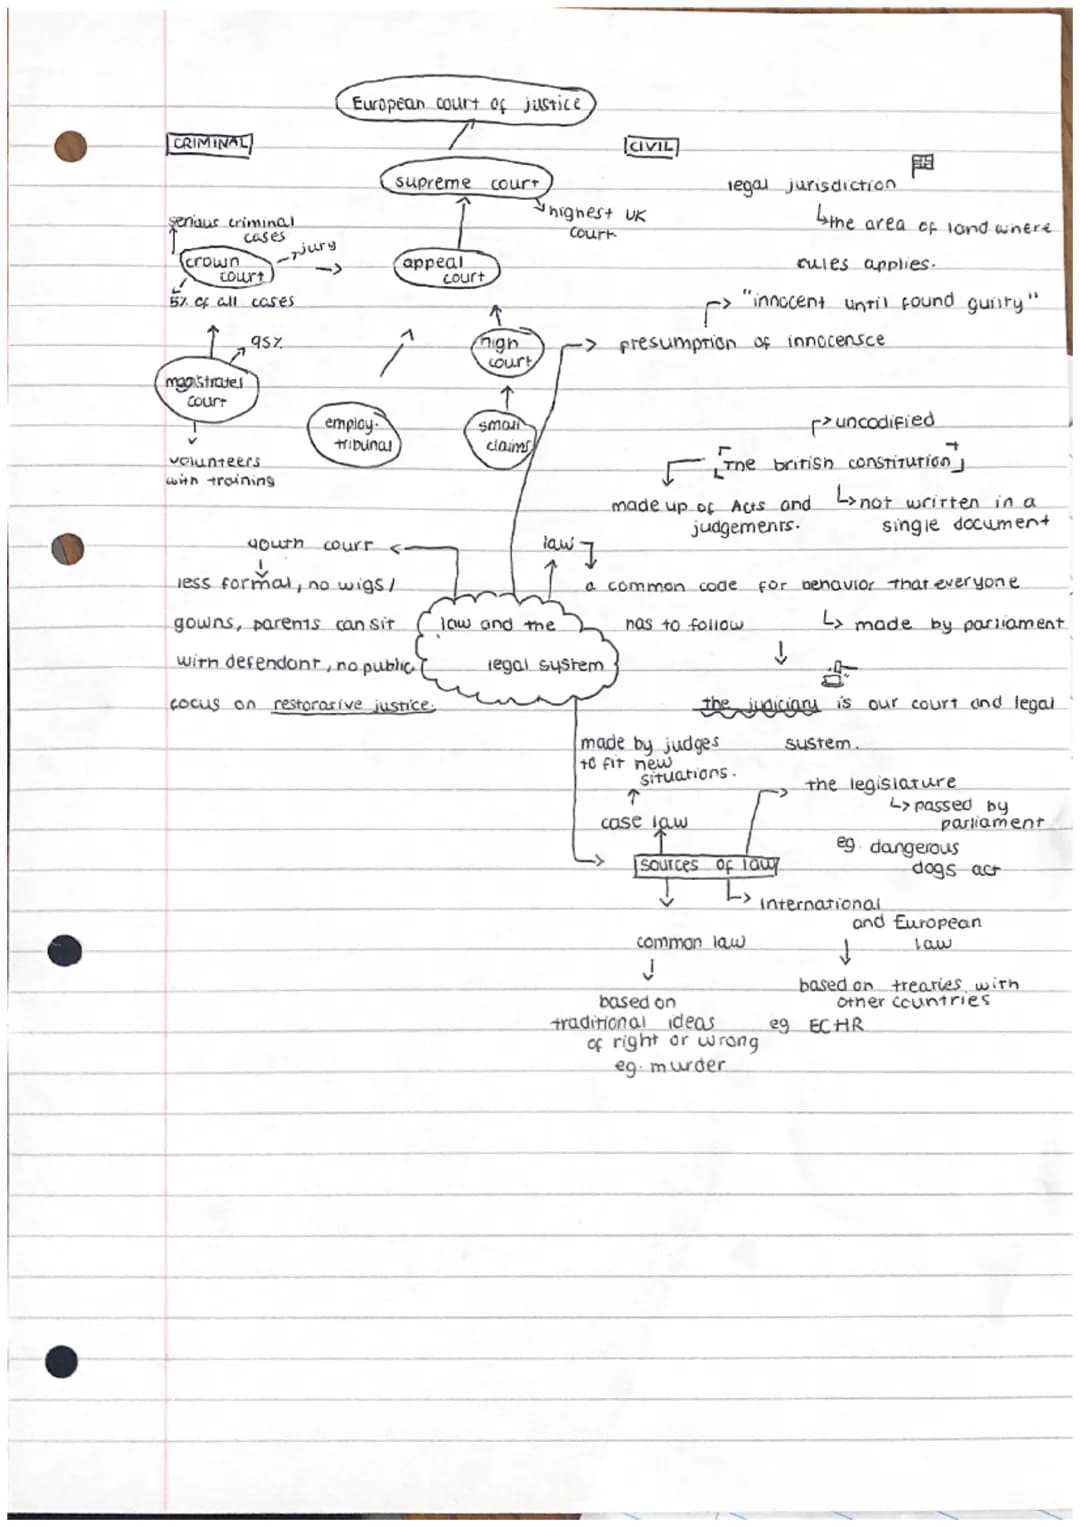 European court of justice
CRIMINAL
CIVIL
supreme court
highest UK
court
legal jurisdiction
the area of land where
rules applies.
serious criminal
cases
crown
court
jury
5% of all cases
appeal
court
"innocent until found guilty"
presumption of innocensce
95%
magistrates
court
volunteers
with training
high
court
employ.
tribunal
small
claims
uncodified
The british constitution
made up of Acts and
judgements.
not written in a
single document
youth court
less formal, no wigs /
gowns, parents can sit
with defendant, no public
focus on restorative justice.
law
a common code for behavior that everyone
has to follow
made by parliament
law and the
legal system
the judiciary is our court and legal
system.
made by judges
to fit new
situations.
case law
the legislature
passed by
parliament
eg. dangerous
dogs act
sources of law
International
and European
law
common law
based on treaties with
other countries
eg ECHR
based on
traditional ideas
of right or wrong
eg. murder